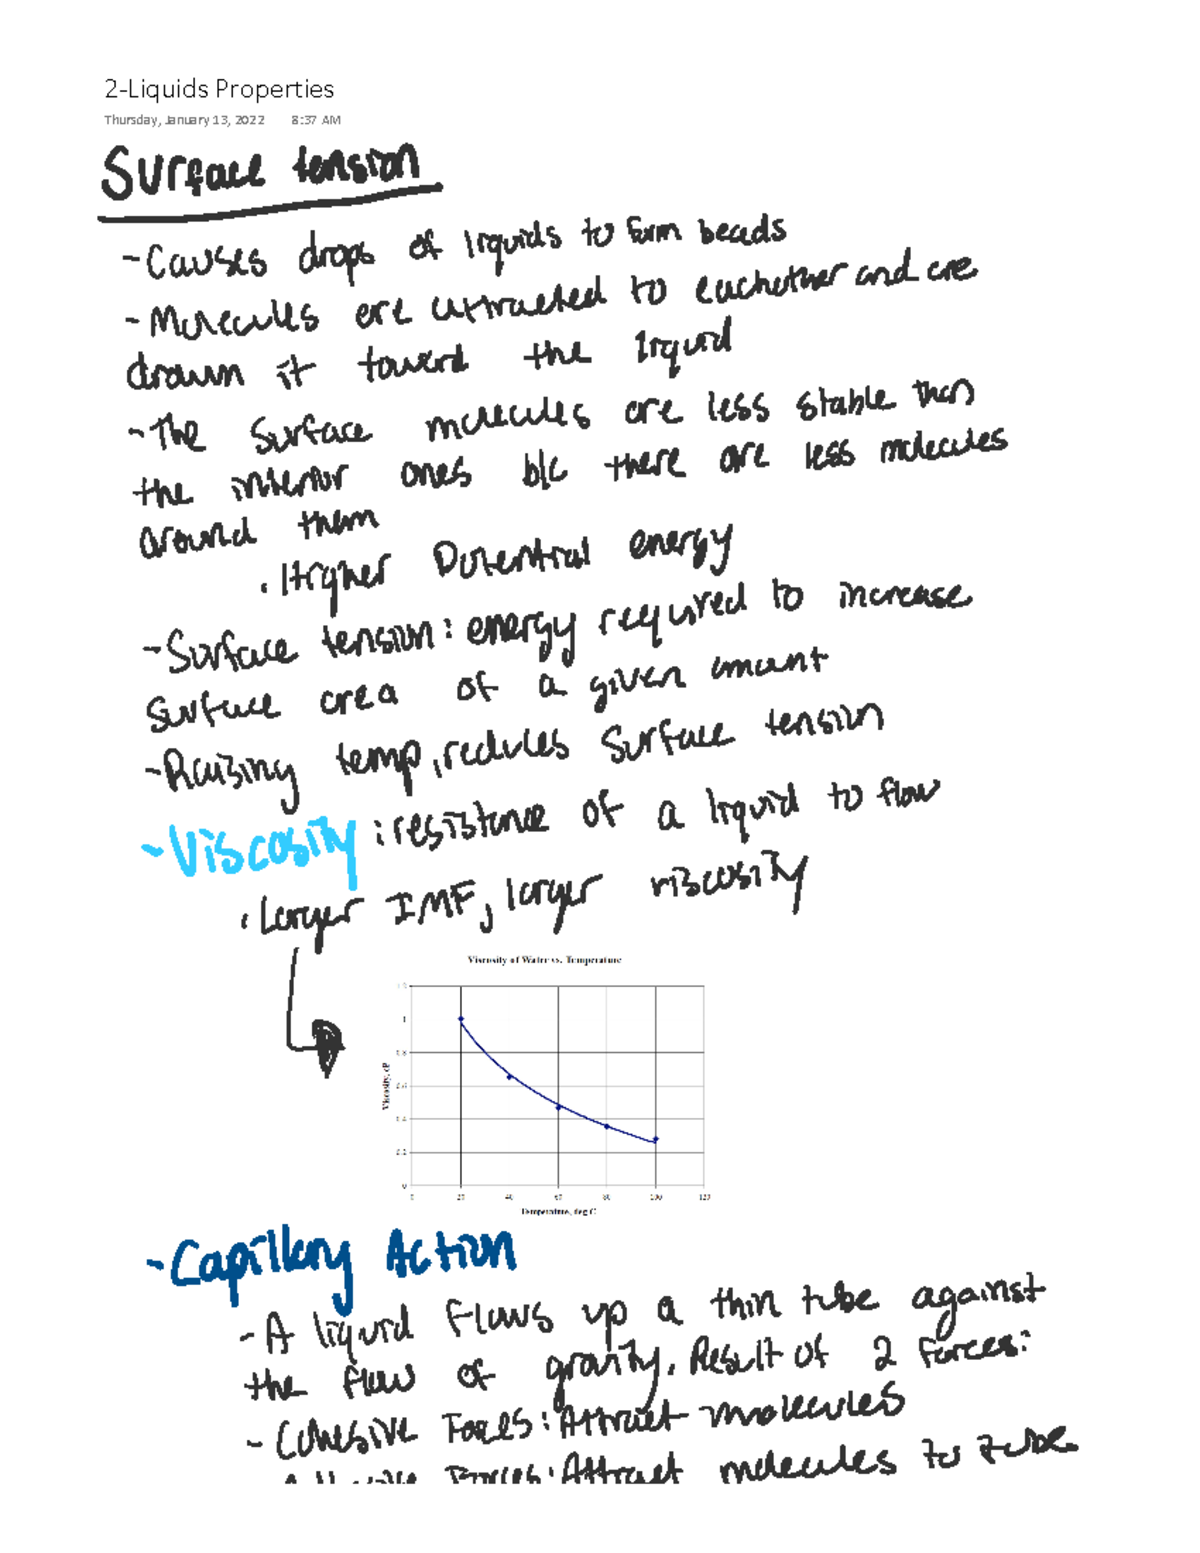 2-Liquids Properties
Thursday, January 13, 2022 8:37 AM
Surface tension
- Causes drops of liquids to form beads
- Molecules are attracted to eachother and are
drawn it toward the liquid
- The surface molecules are less stable than
the interior ones b/c there are less molecules
around them
• Higher Potential energy
- Surface tension: energy required to increase
surface area of a given amount
- Raising temp, reduces surface tension
- Viscosity: resistance of a liquid to flow
• Larger IMF, larger viscosity
Viscosity of Water vs. Temperature
1.2
1
0.8
0.6
0.4
0.2
0
Viscosity, cP
0 20 40 60 80 100 120
Temperature, deg C
- Capillary Action
- A liquid flows up a thin tube against
the flow of gravity. Result of 2 forces:
- Cohesive Forces: Attract molecules
Forces: Attract molecules to tube